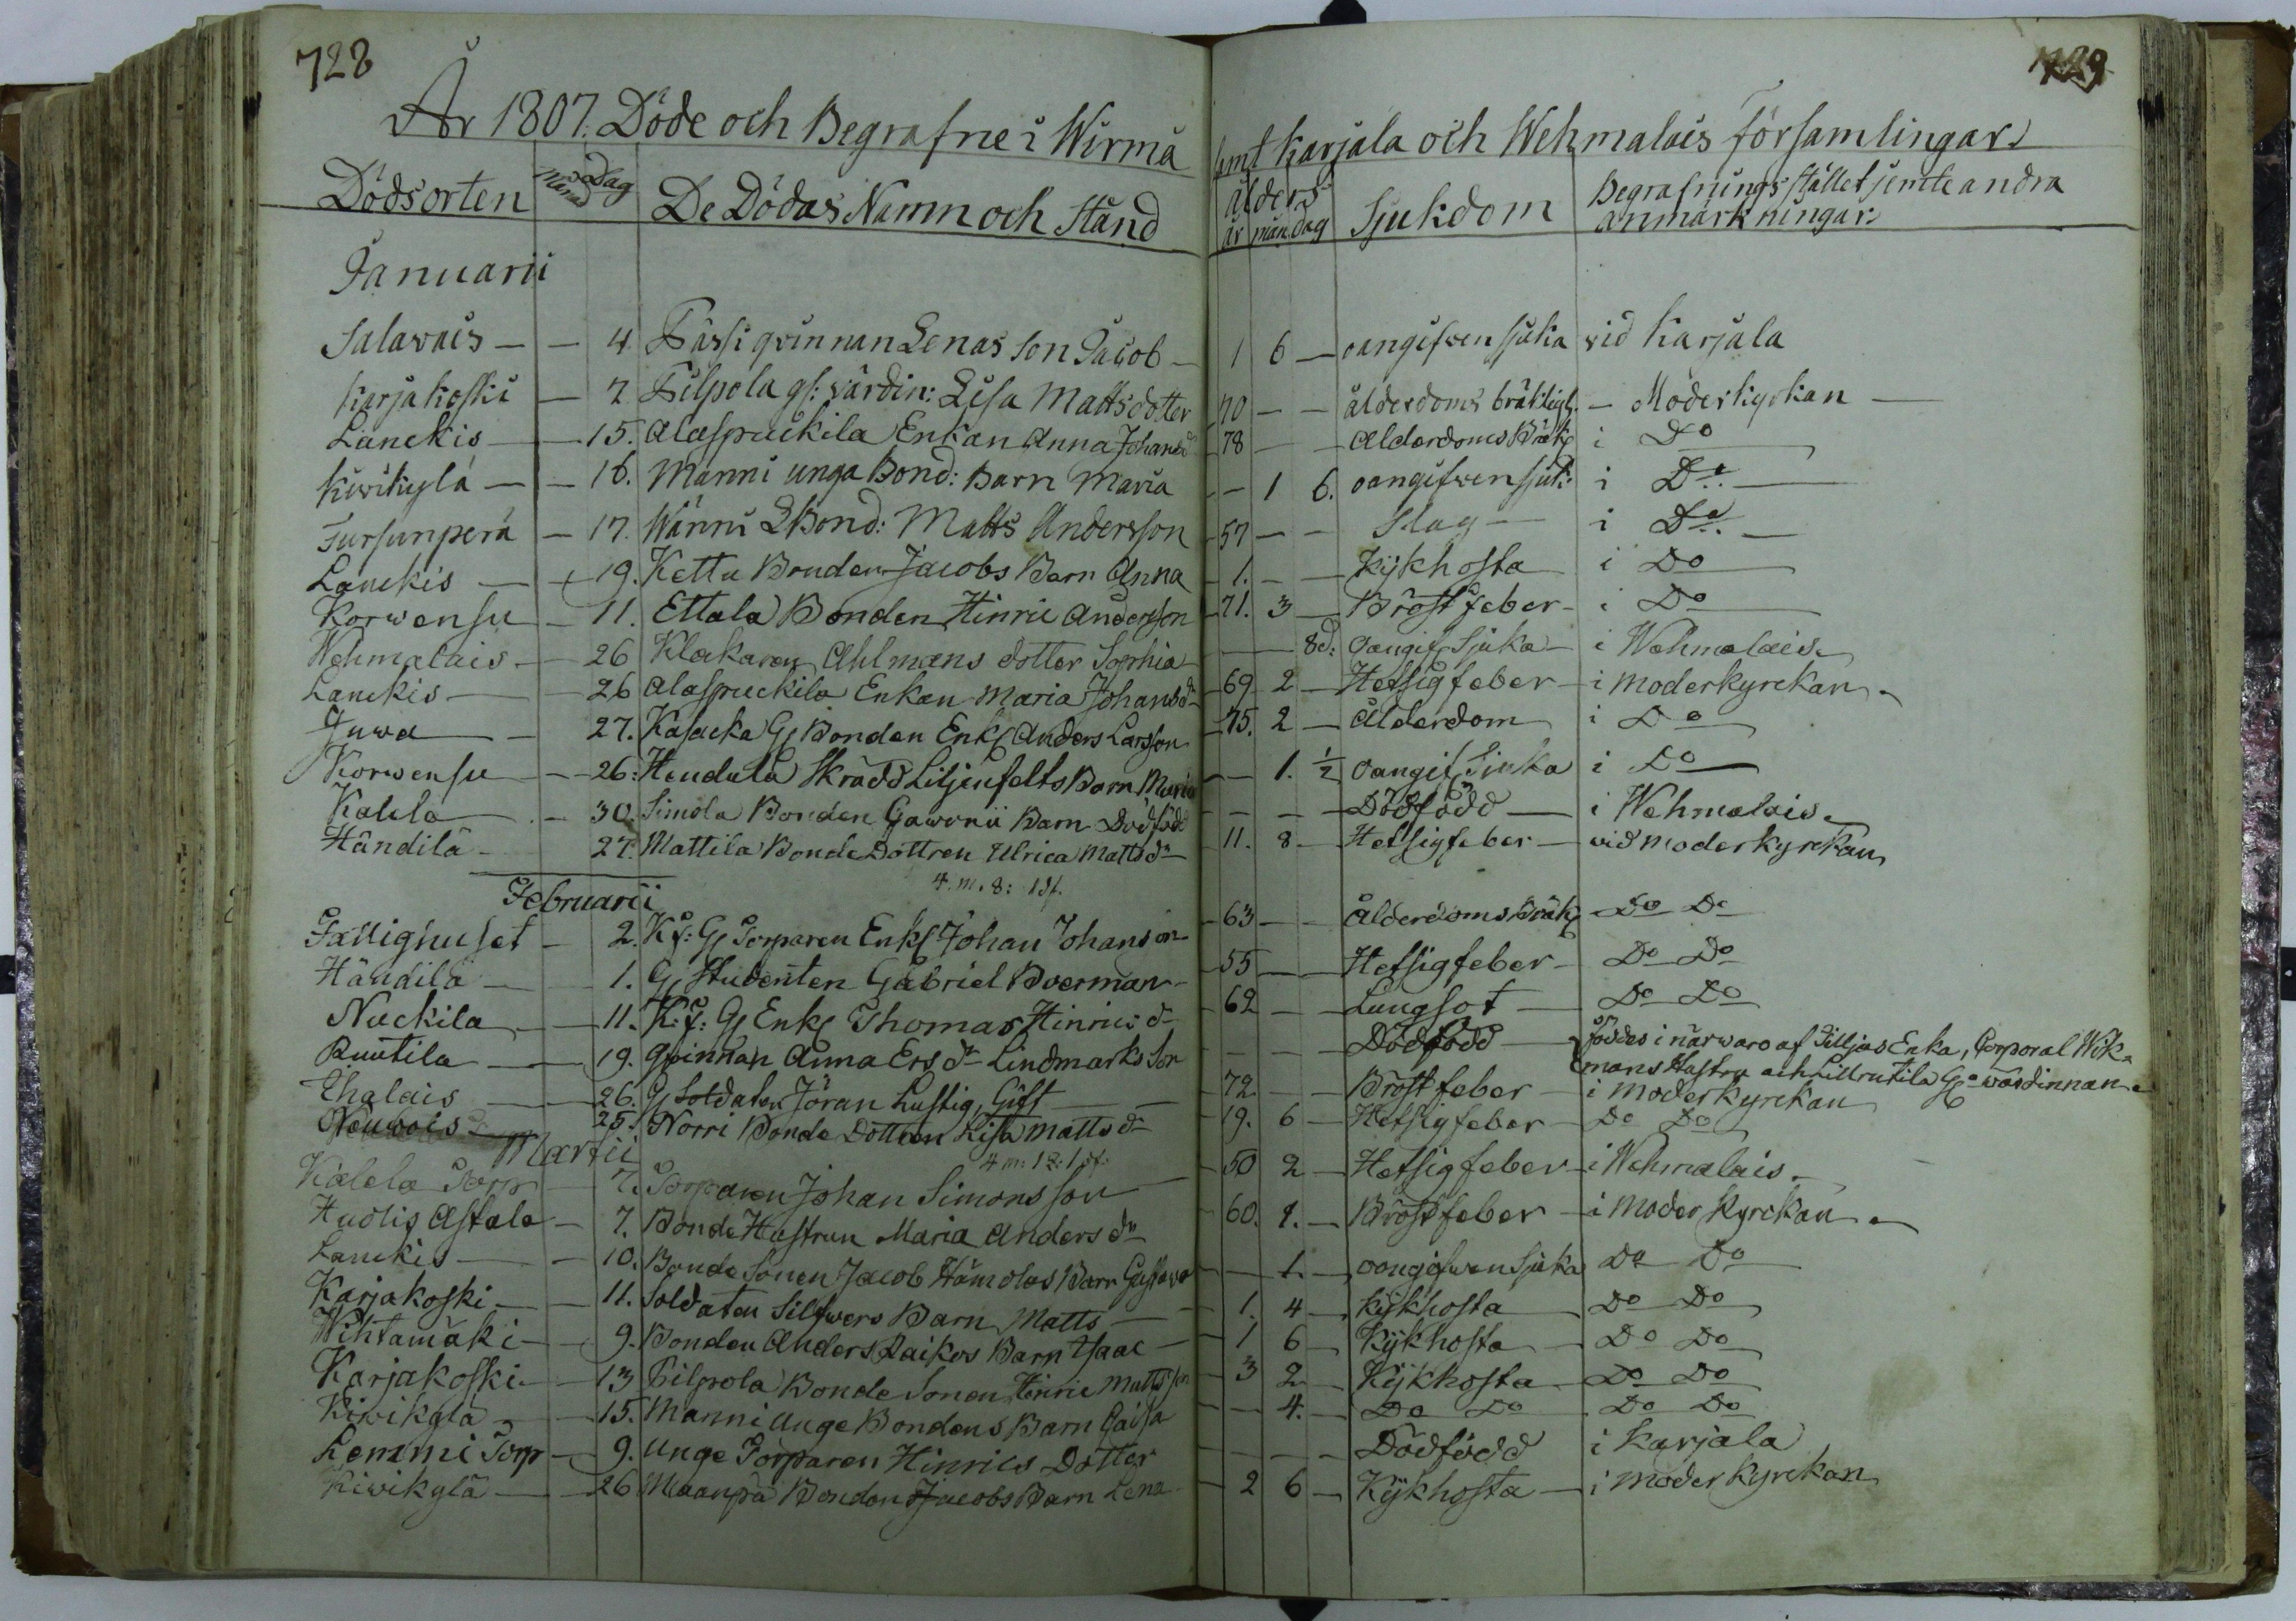 728
729
År 1807. Döde och Begrafne i Wirmå samt Karjala och Wehmalais församlingar
Dödsorten månad dag De Dödas Namn och Stånd ålder år mån dag Sjukdom Begrafnings stället jemte andra anmärkningar.
Januarii
Salavais — — 4 Pässi qvinnan Lenas Son Jacob — 1 6 — oangifven sjuka vid Karjala
Karjakoski — 7 Pilpola gl: värdin: Lisa Mattsdotter 70 — — ålderdoms bräkligh. — Moderkyrkan —
Lanckis — 15. Alaspruckila Enkan Anna Johansd 78 — — Alderdoms Bräkl i Do
Kivikylä — — 16. Manni unga Bond: Barn Maria — 1 6. oangifven sjuk: i Do. —
Tursunperä — 17. Wänni LBond: Matts Andersson 57 — — Slag — i Do. —
Lanckis — 19. Kettu Bonden Jacobs Barn Anna 1. — — Kijkhosta i Do
Korwensu — 11. Ettala Bonden Hinric Andersson 71. 3 — Bröstfeber — i Do
Wehmalais — 26 Klockaren Ahlmans dotter Sophia — 8d: oangif Sjuka — i Wehmalais.
Lanckis — 26 Alaspruckila Enkan Maria Johansdr 69 2 — Hetsigfeber — i moderkyrckan.
Juva — 27. Kasacka Gl Bonden Enkl Anders Larsson 75. 2 — Ålderdom i Do
Korwensu — 26: Hendula Skrädd Liljenfelts Barn Maria — 1. ½ oangif Sjuka i Do
Kalela — 30. Simola Bonden Gawrii Barn Dödfödd — — — Dödfödd — i Wehmalais.
Händilä — 27. Mattila Bonde Dottren Ulrica Mattsdr — 11. 8 — Hetsigfeber — vid moderkyrckan
4. m. 8: 1 df.
Februarii
Fattighuset — 2. K f: Gl Torparen Enkl Johan Johanson 63 — — Ålderdoms Bräkl Do Do
Händilä — 1. Gl Studenten Gabriel Boerman — 55 — — Hetsigfeber — Do Do
Nuckila — 11. K: f: Gl Enkl Thomas Hinricsdr 62 — — Lungsot — Do Do
Ruutila — 19. Qvinnan Anna Ersdr Lindmarks Son — — — Dödfödd — föddes i närwaro af Silljas Enka, Corporal Wik-
mans Hustru och Lillrutila Gla wärdinnan.
Ehalais — 26. Gl Soldaten Jöran Lustig, Gift — 72 — — Bröstfeber — i moderkyrckan
Nauwois 25. Norri Bonde Dottren Lisa Mattsdr 19. 6 — Hetsigfeber — Do Do
Martii
Kalela Torp — 7. Torparen Johan Simonsson — 50 2 — Hetsigfeber — i Wehmalais.
Hudis Astala — 7. Bonde Hustrun Maria Andersdr 60. 1. — Bröstfeber — i moderkyrckan.
Lanckis — 10. Bonde Sonen Jacob Hämolas Barn Gustava — 1. — oangifwen Sjuka Do Do
Karjakoski — 11. Soldaten Silfwers Barn Matts — 1. 4 — Kijkhosta Do Do
Wihtamäki — 9. Bonden Anders Raikos Barn Isaac — 1 6 — Kijkhosta — Do Do
Karjakoski — 13 Pilpola Bonde Sonen Hinric Mattsson 3 2 — Kijkhosta Do Do
Kivikyla — 15. Manni unge Bondens Barn Caisa — 4. — Do Do Do Do
Lemmi Torp — 9. Unge Torparen Hinrics Dotter — — — Dödfödd i Karjala
Kivikylä — 26 Maanpä Bonden Jacobs Barn Lena — 2 6 — Kijkhosta — i moderkyrckan